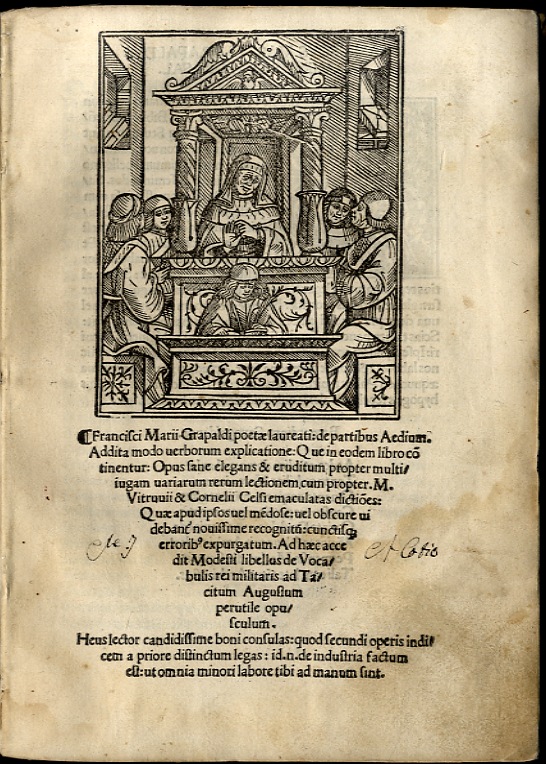 ¶Francisci Marii Grapaldi poetæ laureati: de partibus Aedium.
Addita modo uerborum explicatione: Quæ in eodem libro cō
tinentur: Opus sane elegans & eruditum propter multi/
iugam uariarum rerum lectionem, cum propter. M.
Vitruuii & Cornelii Celsi emaculatas dictiões:
Quæ apud ipsos uel mēdose: uel obscure ui
debanť nouissime recognitū: cunctisq;
erroribꝰ expurgatum. Ad hæc acce
dit Modesti libellus de Voca/
bulis rei militaris ad Ta/
citum Augustum
perutile opu/
sculum.
Heus lector candidissime boni consulas: quod secundi operis indi/
cem a priore distinctum legas: id.n. de industria factum
est: ut omnia minori labore tibi ad manum sint.